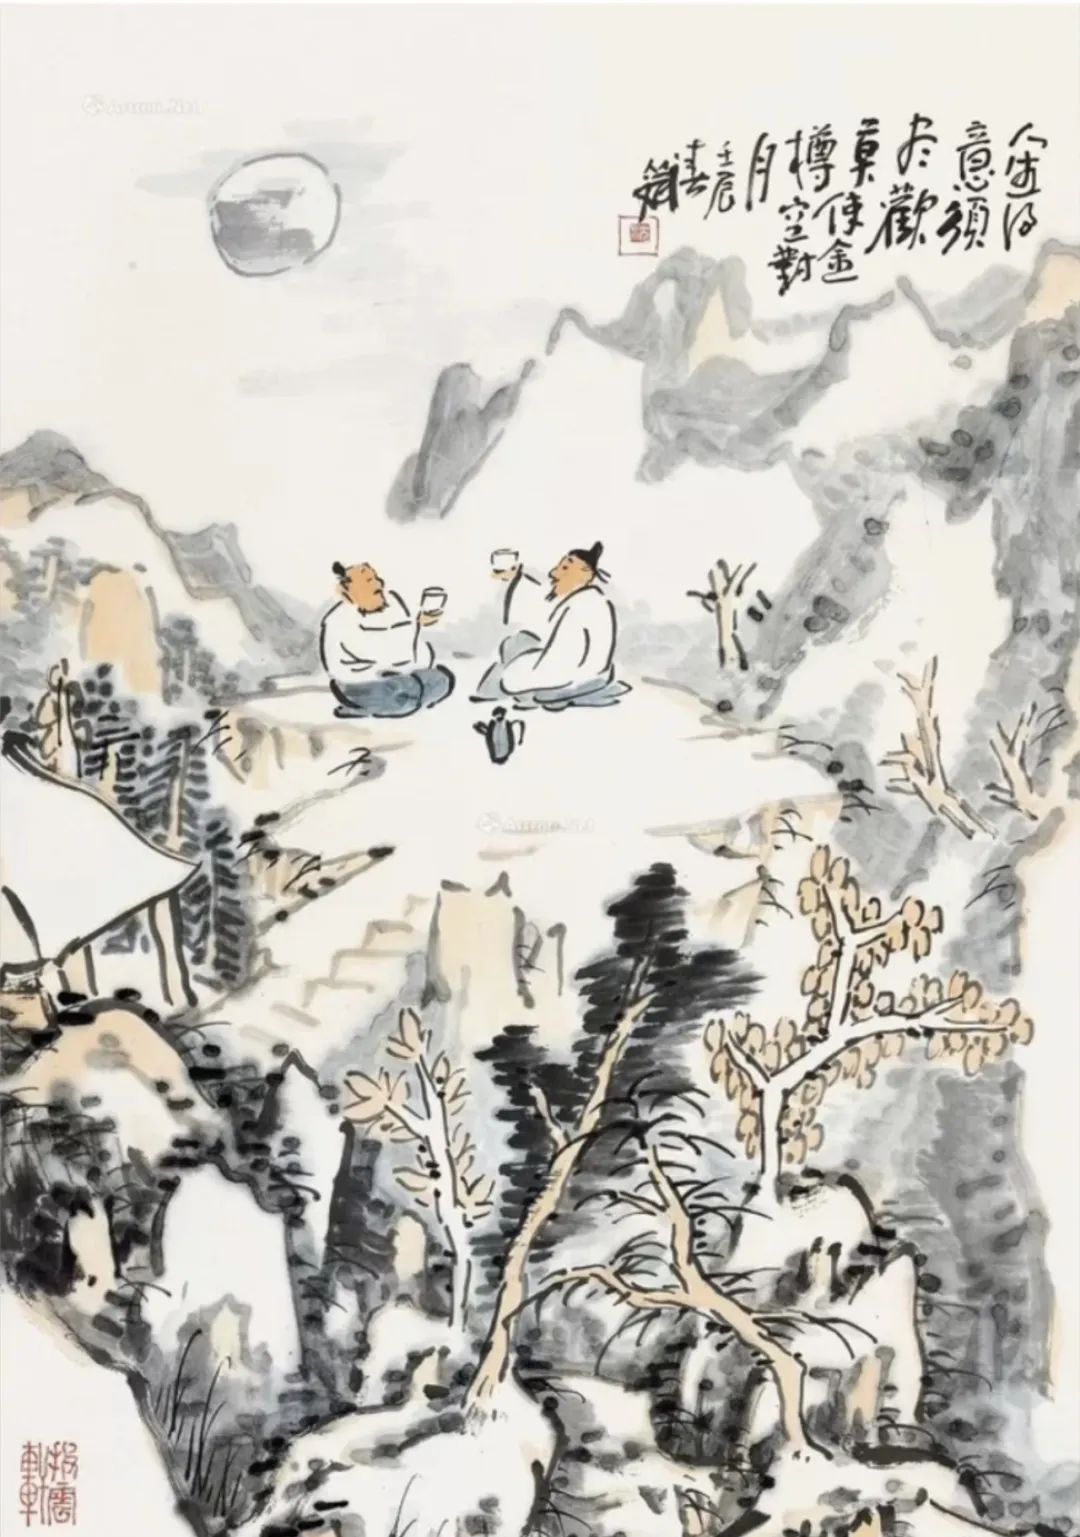 人生得
意须
尽歡
莫使金
樽空對
月
壬辰
春
Artron.Net
Artron.Net